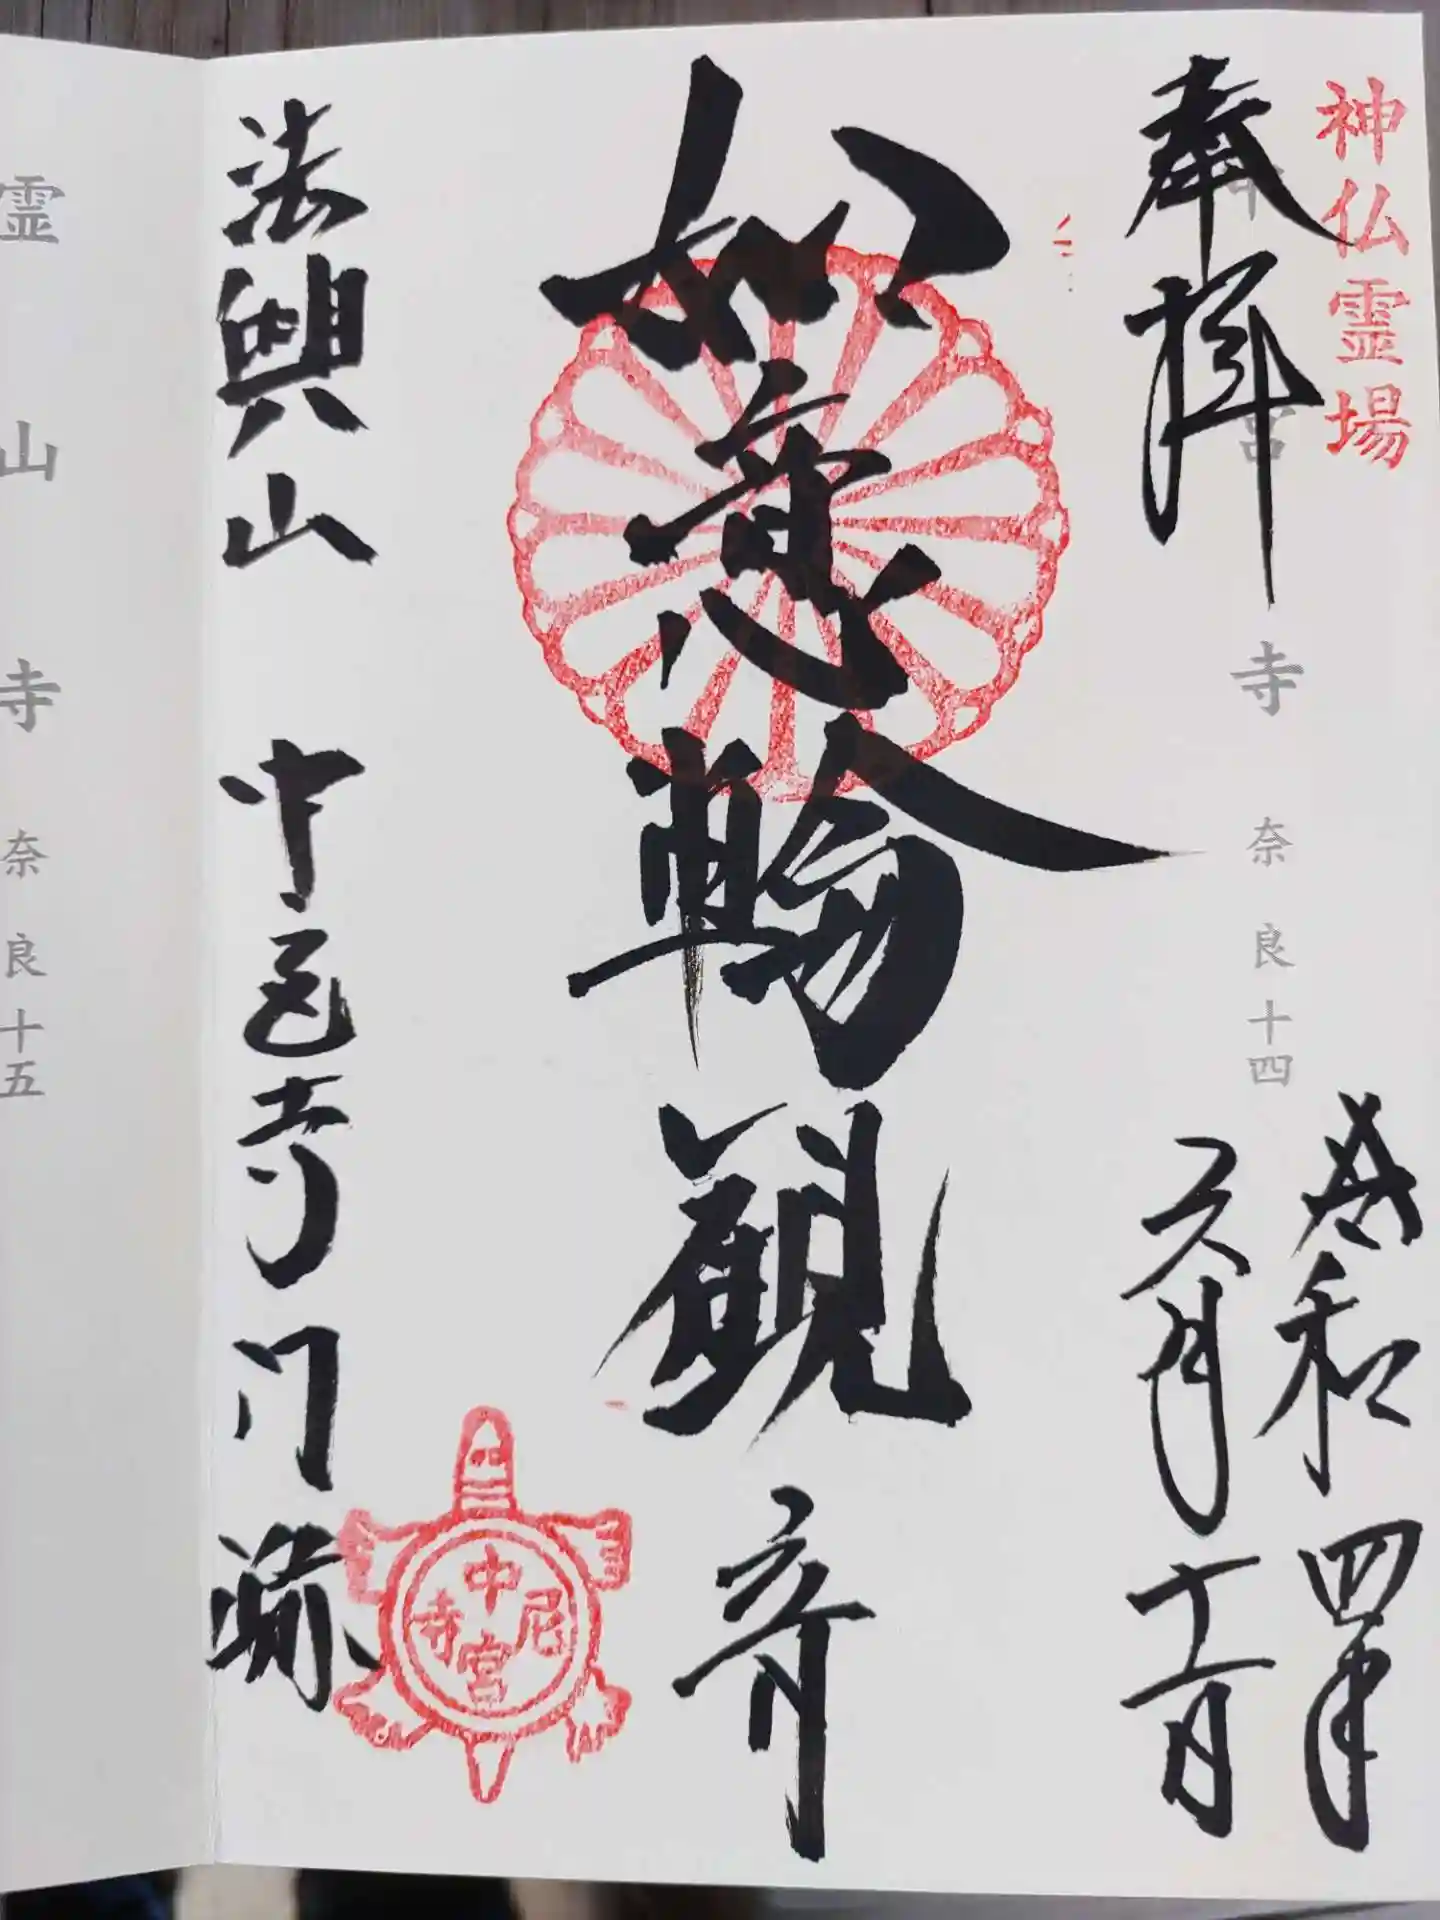 神仏霊場
奉拝
中宮寺 奈良十四
令和四年
六月十一日
如意輪觀音
法興山 中宮寺門跡
中宮尼寺
霊山寺 奈良十五